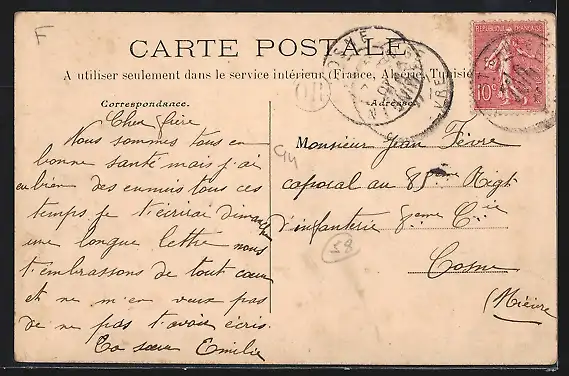 F
CARTE POSTALE
A utiliser seulement dans le service intérieur (France, Algérie, Tunisie
Correspondance.
Cher frère
Nous sommes tous en
bonne santé mais j'ai
eu bien des ennuis tous ces
temps je t'écrirai dimanche
une longue lettre nous
t'embrassons de tout cœur
et ne m'en veux pas
de ne pas t'avoir écris.
Ta sœur Emilie
Adresse
Monsieur Jean Fèvre
caporal au 85ème Rigt
d'infanterie 8ème Cie
Cosne
(Nièvre
REPUBLIQUE FRANÇAISE
10
OR
58